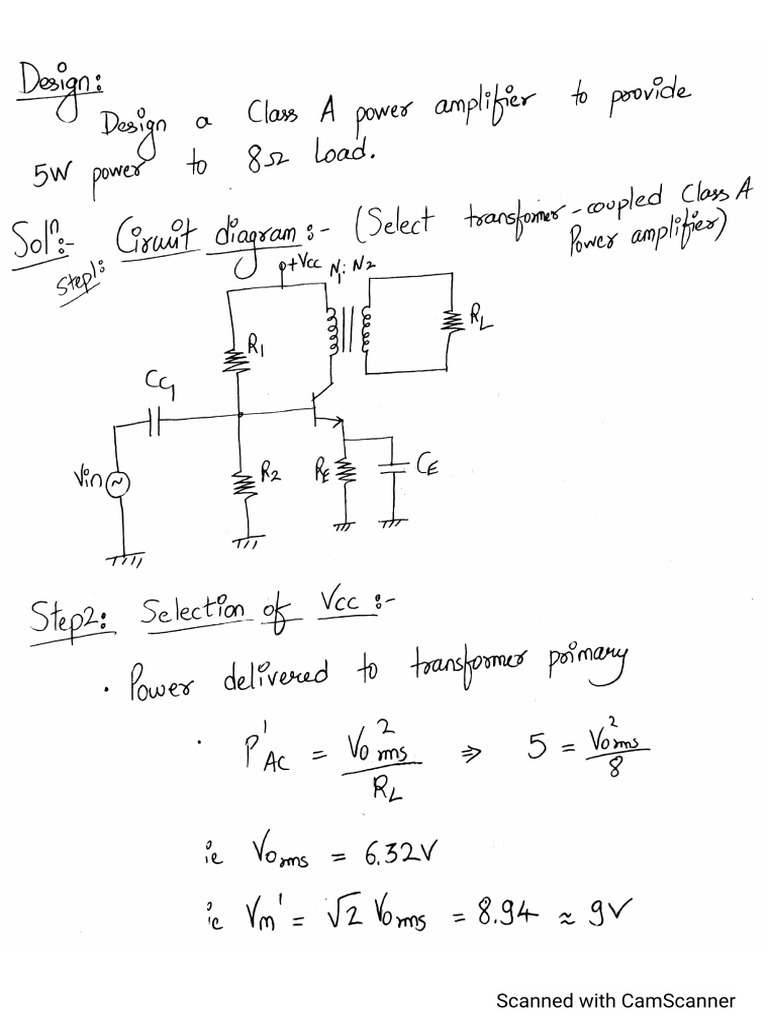 Design:
Design a Class A power amplifier to provide
5W power to 8Ω Load.
Solⁿ:- Circuit diagram:- (Select transformer-coupled Class A
Power amplifier)
Step1:
+Vcc N1:N2
R1
RL
CC1
Vin
R2
RE
CE
Step2: Selection of Vcc:-
• Power delivered to transformer primary
• P'AC = Vo rms² / RL ⇒ 5 = Vo rms² / 8
ie Vo rms = 6.32V
ie Vm' = √2 Vo rms = 8.94 ≈ 9V
Scanned with CamScanner